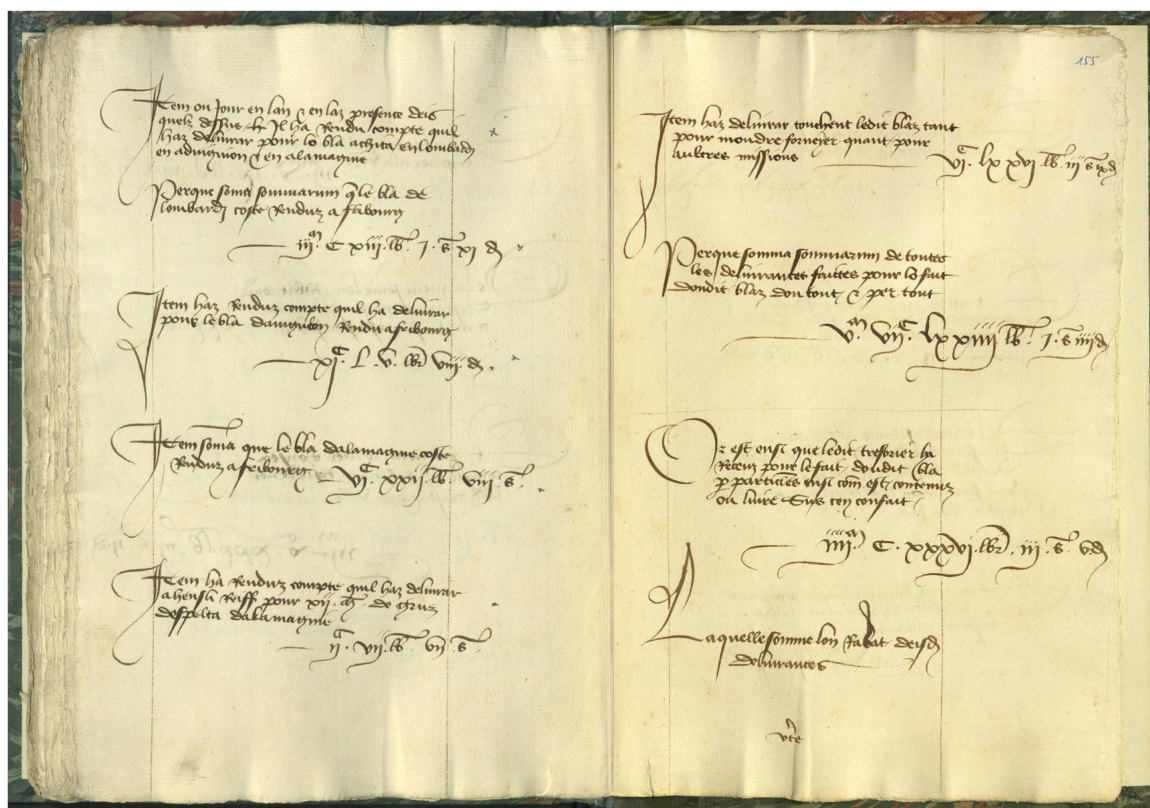 Item ou Jour en lan & en laz presente deis
quelx dessus Il ha Rendu compte quil
haz delivrar pour lo bla achita en lombardi
en advignion & en alamagnie
Perque soma sommarum q̄ le bla de
lombardi coste Renduz a fribourg
iijᵐ C xiij lb. I. s. xj d
Item haz Renduz compte quil ha delivrar
pour le bla davignion Rendu a fribourg
xjᶜ. L. v. lbr viij. d.
Item soma que le bla dalamagnie coste
Renduz a fribourg vjᶜ. xxij. lb. viij s.
Item ha Renduz compte quil haz delivrar
a hensli Reiff pour xij. de gruz
despelta dalamagnie
ijᶜ. vij. lb. vij s.
155
Item haz delivrar touchent ledit blaz tant
pour moudre forneyer quant pour
aultres missions vjᶜ. lxxvj lb. iij s. ix d
Perque somma sommarum de toutes
les delivrances faittes pour lo fait
doudit blaz dou tout & per tout
vᵐ. vijᶜ. lxxiiij lb. I. s. iiij d
Or est ensi que ledit tresorier ha
Receuz pour le fait doudit bla
p particules ensi com est contenuz
ou livre Sus cen confait
iiijᵐ C. xxxvj. lbr. iij. s. v d
Laquelle somme lon Rabat deisd
delivrances
vte